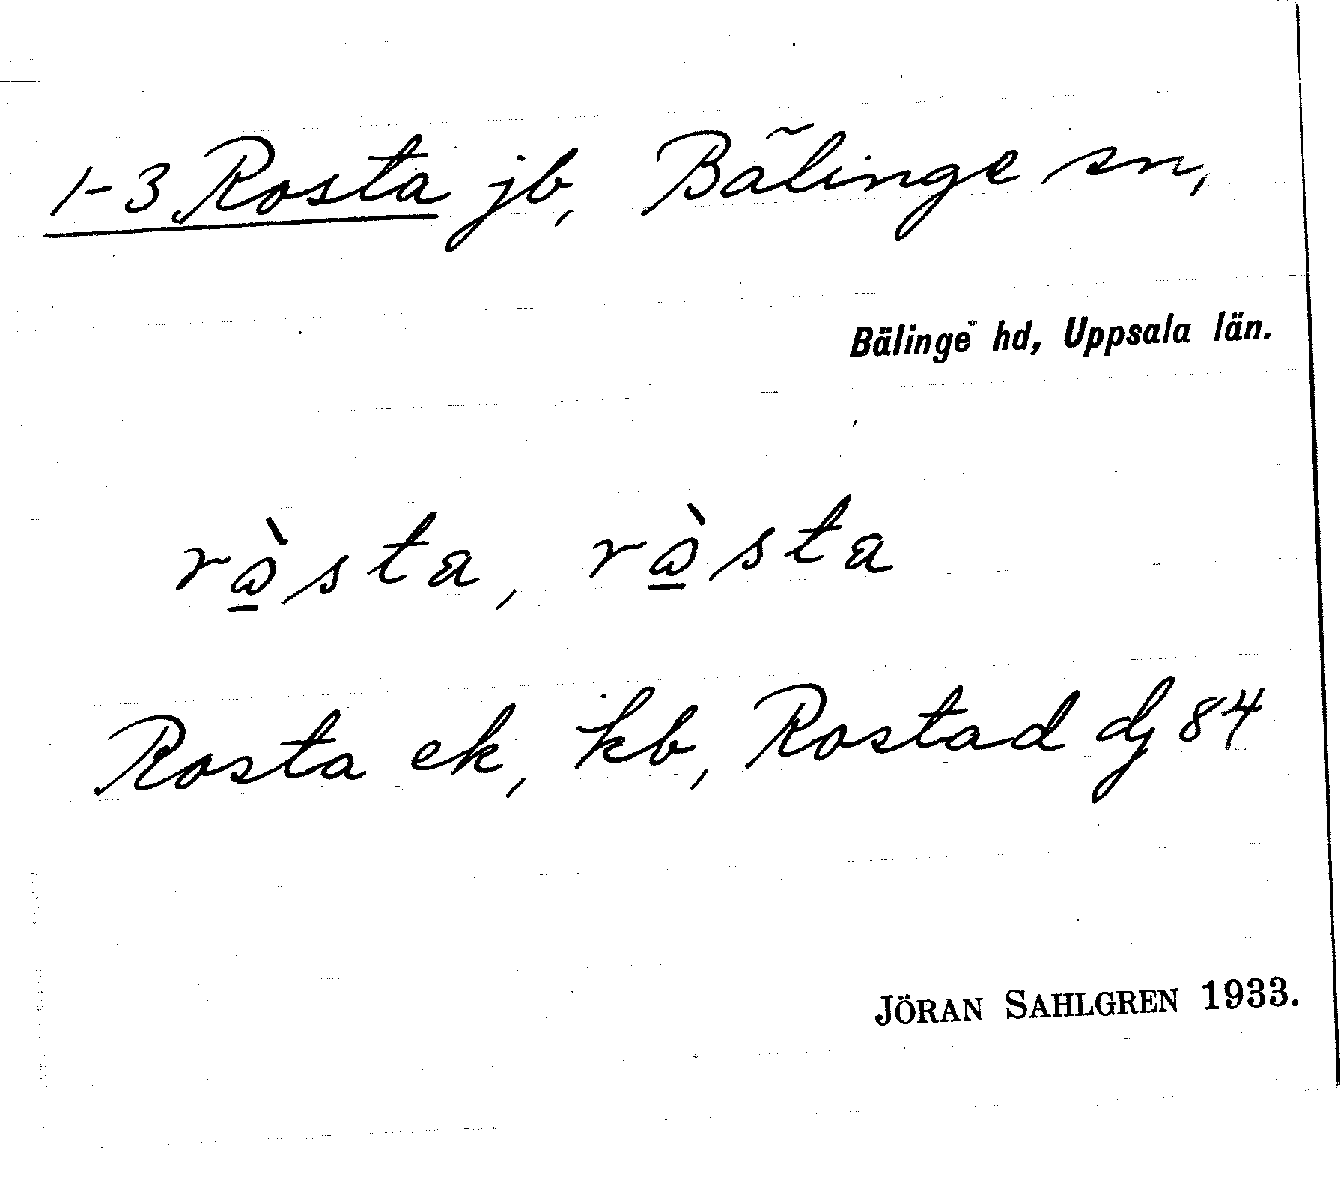 1-3 Rosta jb, Bälinge sn,
Bälinge hd, Uppsala län.
rò̱sta, rò̱sta
Rosta ek, kb, Rostad dj 84
JÖRAN SAHLGREN 1933.